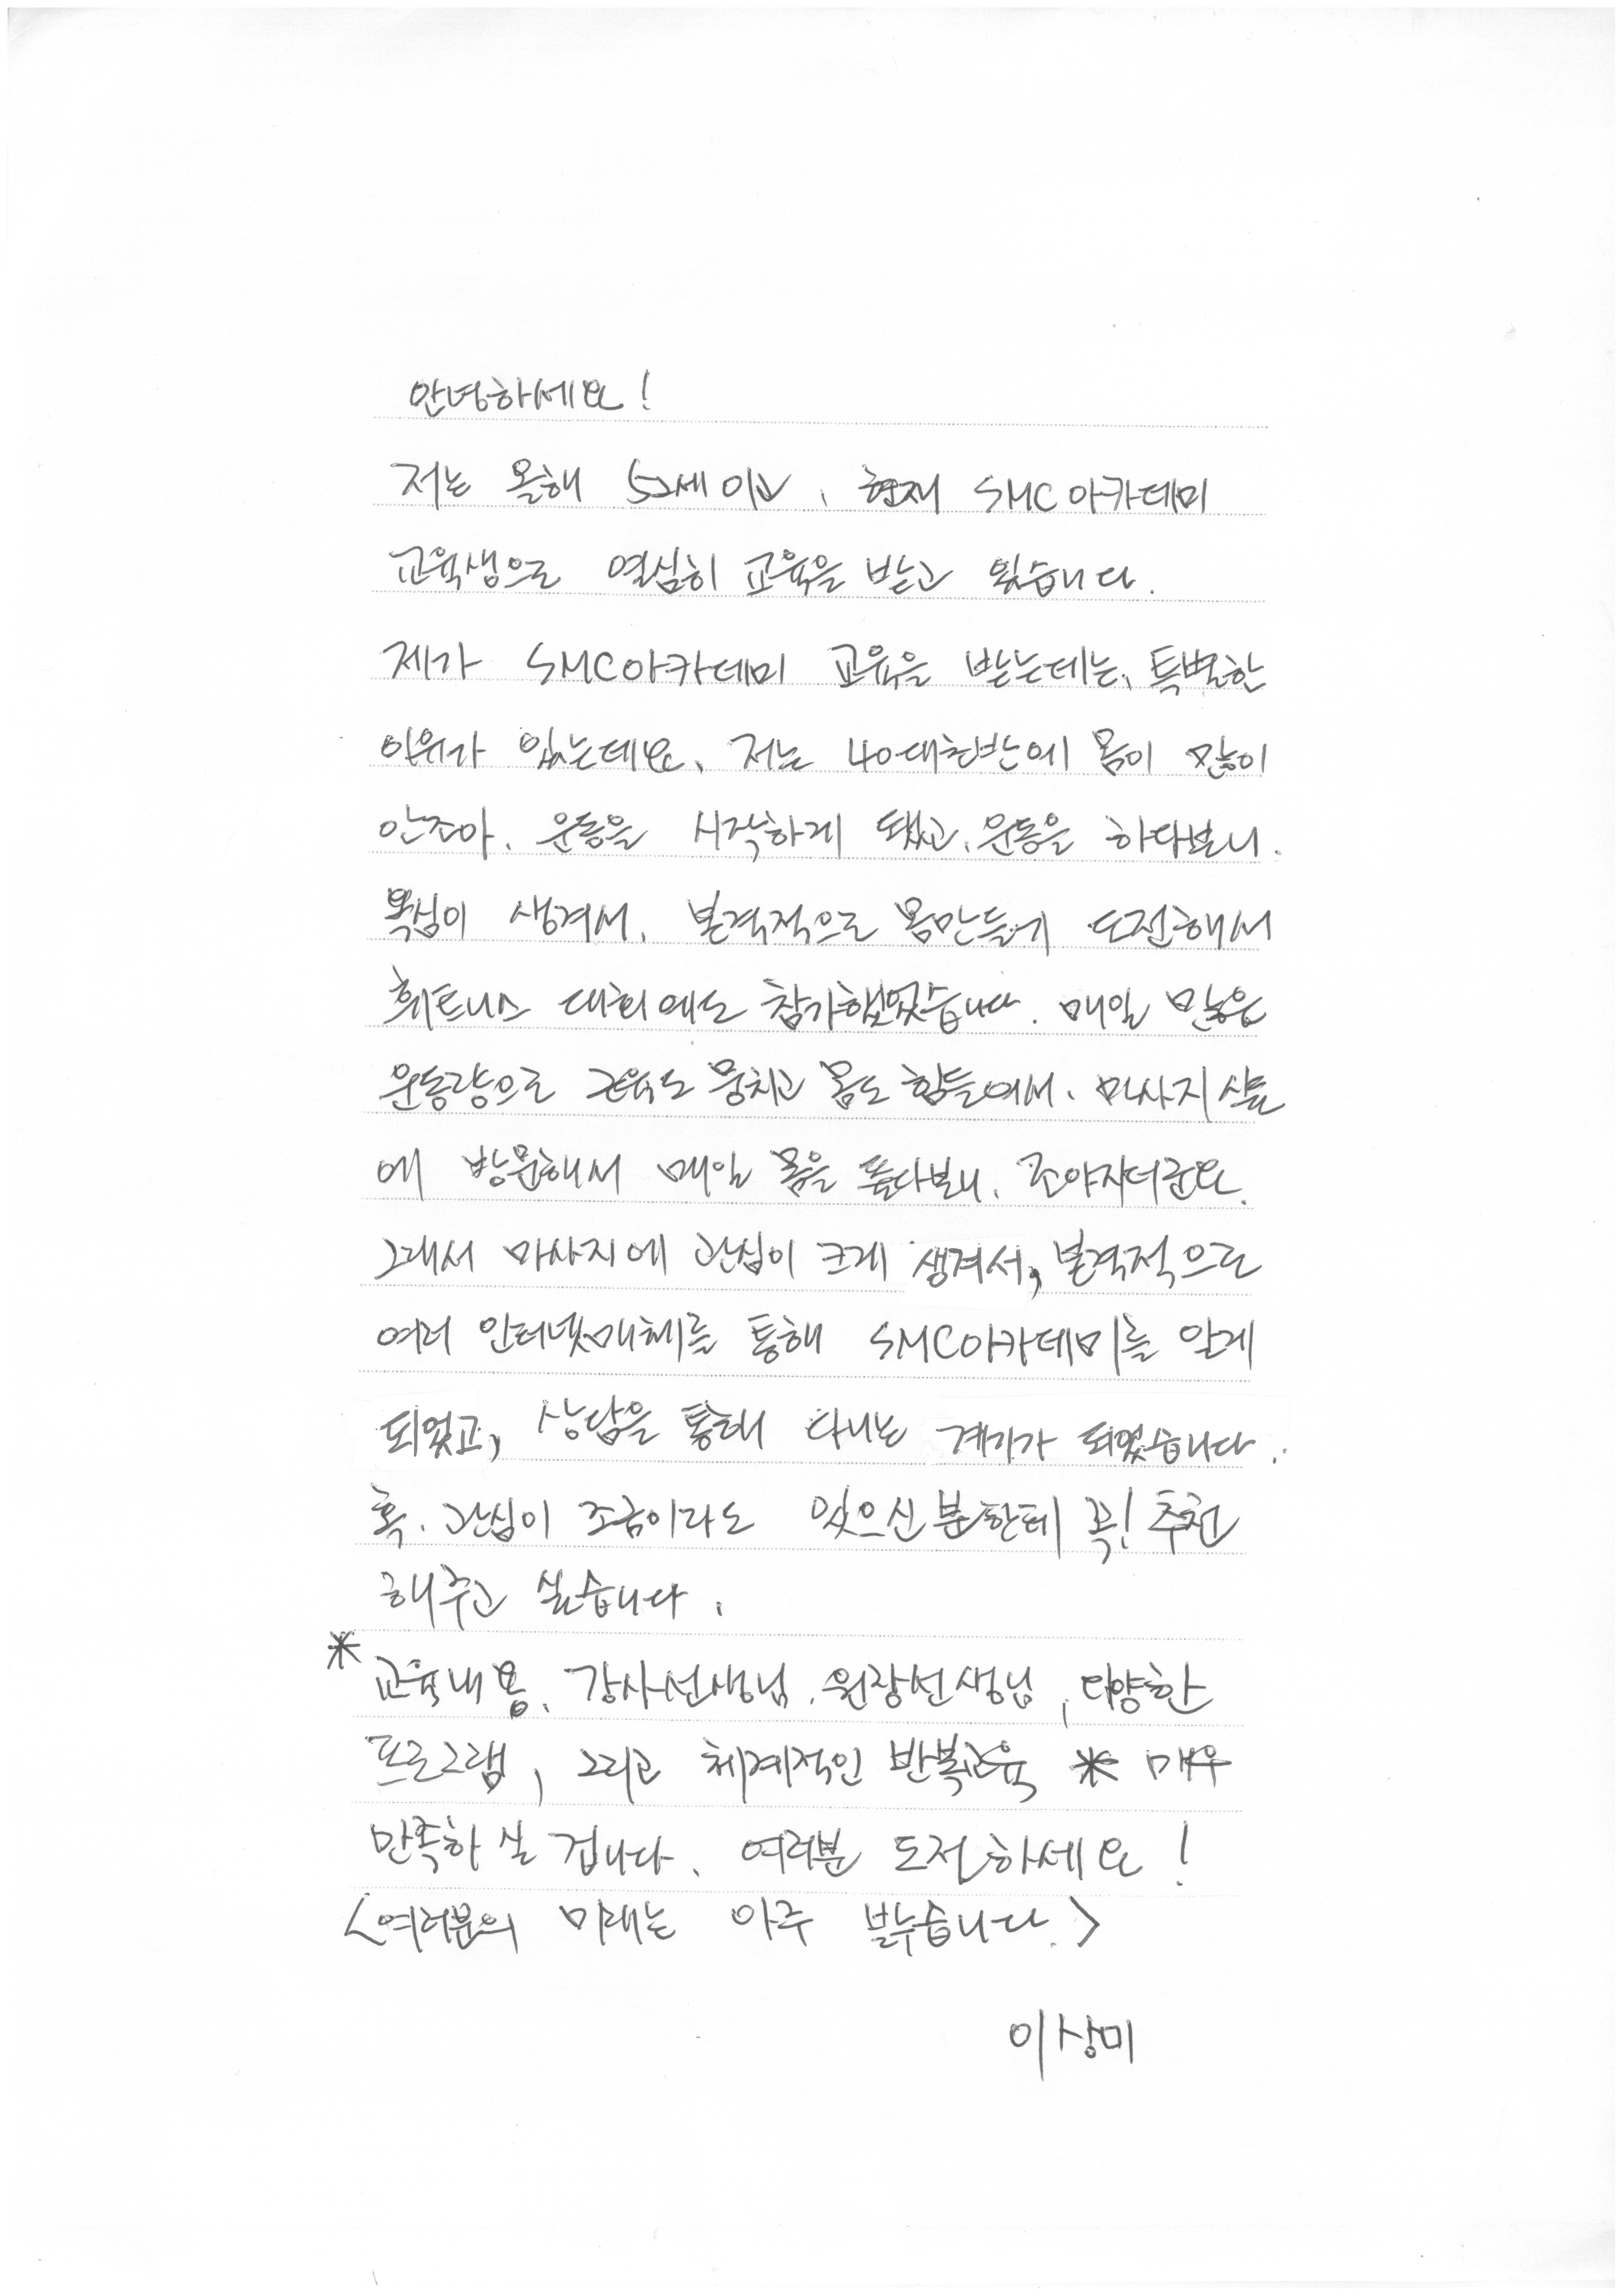 안녕하세요!
저는 올해 52세이고, 현재 SMC아카데미
교육생으로 열심히 교육을 받고 있습니다.
제가 SMC아카데미 교육을 받는데는, 특별한
이유가 있는데요, 저는 40대초반에 몸이 많이
안조아, 운동을 시작하게 됐고, 운동을 하다보니.
욕심이 생겨서, 본격적으로 몸만들기 도전해서
휘트니스 대회에도 참가했었습니다. 매일 많은
운동량으로 근육도 뭉치고 몸도 힘들어서, 마사지샵
에 방문해서 매일 몸을 풀다보니, 조아지더군요.
그래서 마사지에 관심이 크게 생겨서, 본격적으로
여러 인터넷매체를 통해 SMC아카데미를 알게
되었고, 상담을 통해 다니는 계기가 되었습니다.
혹, 관심이 조금이라도 있으신분한테 꼭! 추천
해주고 싶습니다.
* 교육내용, 강사선생님, 원장선생님, 다양한
프로그램, 그리고 체계적인 반복교육 * 매우
만족하실겁니다. 여러분 도전하세요!
<여러분의 미래는 아주 밝습니다.>
이상미